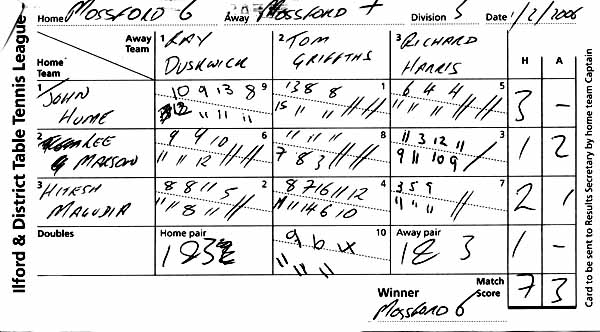 Ilford & District Table Tennis League
Home MOSSFORD 6 Away MOSSFORD 7 Division 5 Date 1/2/2006
Away Team
Home Team
1 RAY DUSRWICK
2 TOM GRIFFITHS
3 RICHARD HARRIS
H A
1 JOHN HUME
10 9 13 8 9
11 11 11
13 8 8 1
15 11 11
6 4 4 5
11 11 11
3 -
2 LEE MARSON
9 4 10 6
11 11 12
11 11 11 8
7 8 3
11 3 12 11 3
9 11 10 9
1 2
3 HITESH MAGUDIA
8 8 11 5 2
11 11 8 11
8 7 16 11 12 4
11 11 14 6 10
3 5 9 7
11 11 11
2 1
Doubles
Home pair
1 & 3
9 6 14 10
11 11
Away pair
1 & 3
1 -
Winner MOSSFORD 6
Match Score 7 3
Card to be sent to Results Secretary by home team Captain